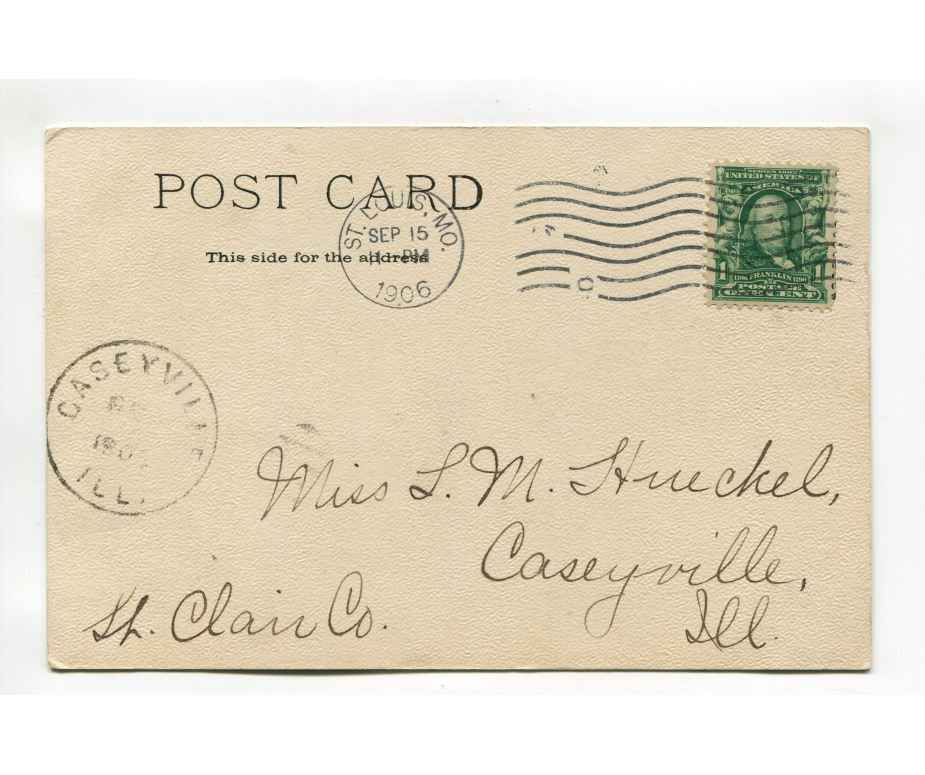 POST CARD
This side for the address
ST. LOUIS, MO.
SEP 15
PM
1906
SERIES 1902
UNITED STATES OF
AMERICA
1 FRANKLIN 1
POSTAGE
ONE CENT
CASEYVILLE
ILL.
Miss L. M. Hueckel,
Caseyville,
St. Clair Co. Ill.